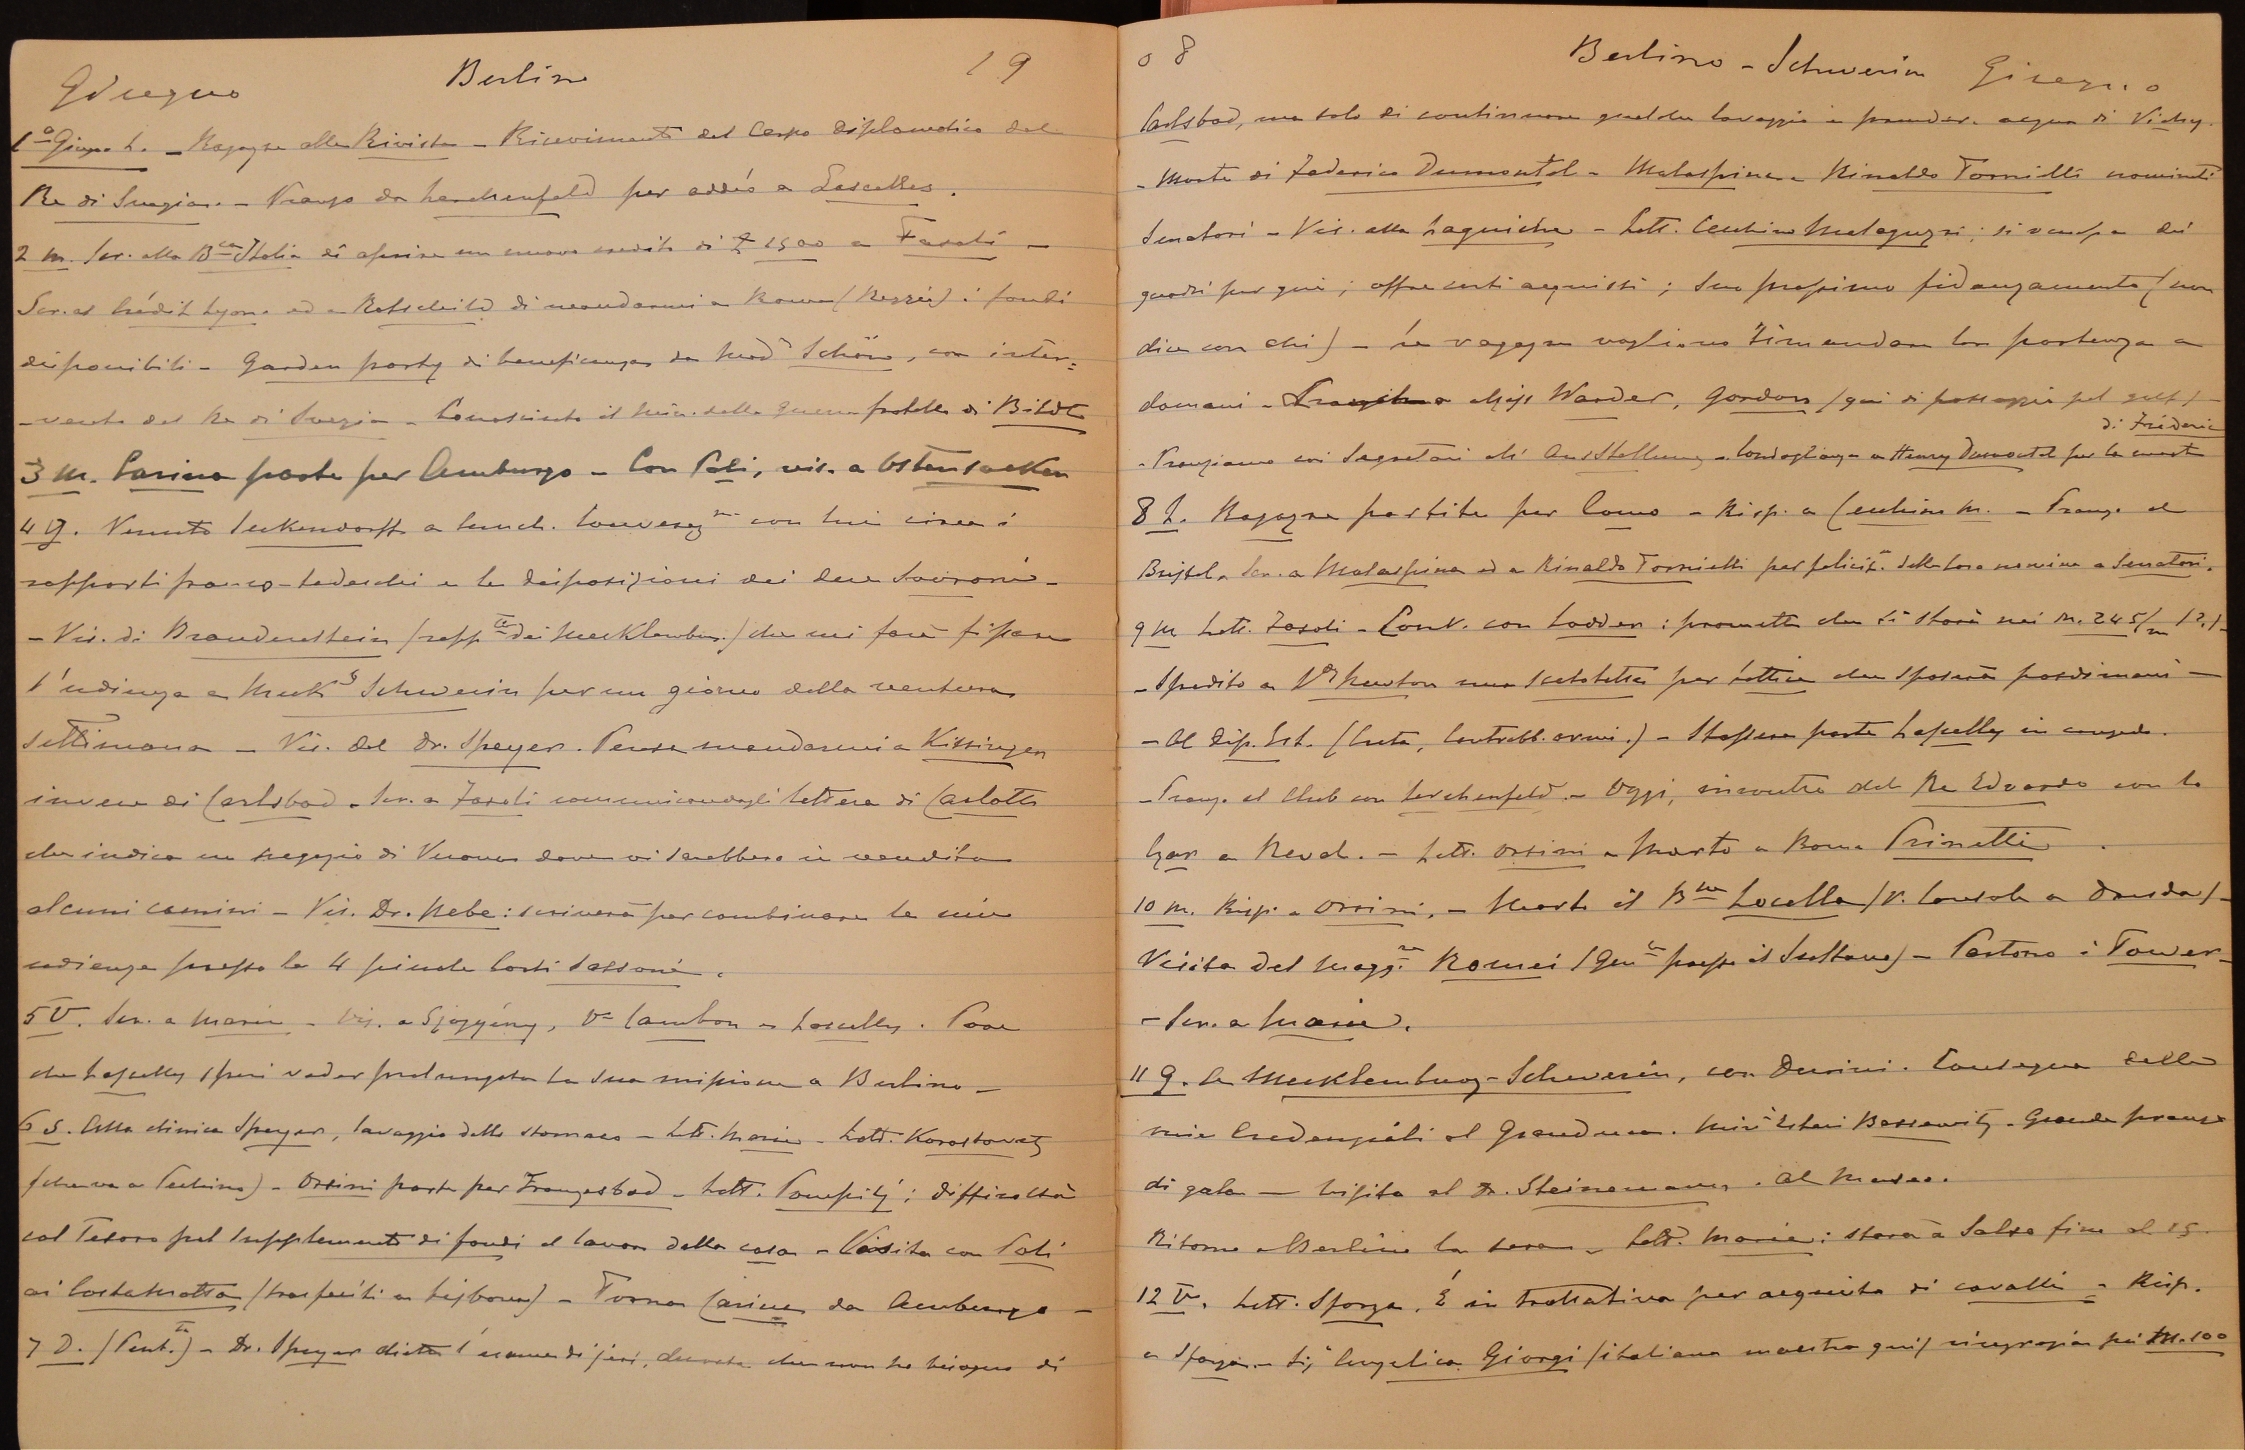 Giugno Berlino 19
1° Giugno L. - Ragazze alla Rivista - Ricevimento del Corpo diplomatico dal
Re di Svezia. - Pranzo da Lerchenfeld per addio a Lascelles.
2 M. Scr. alla Bca Italia di aprire un nuovo credito di £ 1500 a Fasoli -
Scr. al Crédit Lyon. ed a Rotschild di mandarmi a Roma i fondi
disponibili - Garden party di beneficenza da Mad. Schön, con inter=
-vento del Re di Svezia - Conosciuto il Min. della guerra fratello di Bildt
3 M. Carina parte per Amburgo - Con Poli, vis. a Ostensacken
4 G. Venuto Seckendorff a lunch. Conversazne con lui circa i
rapporti franco-tedeschi e le disposizioni dei due Sovrani -
- Vis. di Brandenstein (rapp.te dei Mecklemburg.) che mi farà fissare
l'udienza a Meck.g Schwerin per un giorno della ventura
settimana - Vis. del Dr. Speyer. Pensa mandarmi a Kissingen
invece di Carlsbad - Scr. a Fasoli comunicandogli lettera di Carlotti
che indica un negozio di Verona dove vi sarebbero in vendita
alcuni camini - Vis. Dr. Nebe: scriverà per combinare le mie
udienze presso le 4 piccole Corti Sassoni.
5 V. Scr. a Maria - Vis. a Szögyény, Vis. Cambon e Lascelles. Pare
che Lascelles speri veder prolungata la sua missione a Berlino -
6 S. Alla clinica Speyer, lavaggio dello stomaco - Lett. Maria - Lett. Korostovetz
(che va a Pechino) - Orsini parte per Franzesbad - Lett. Pompilj; difficoltà
col Tesoro pel supplemento di fondi al lavori della casa - Visita con Poli
ai Costa Motta (trasferiti a Lisbona) - Torna Carina da Amburgo -
7 D. (Pent.te) - Dr. Speyer dietro l'esame di jeri, dichiara che non ho bisogno di
08 Berlino - Schwerin Giugno
Carlsbad, ma solo di continuare qualche lavaggio e prender acqua di Vichy.
- Morte di Federico Dumontel - Malaspina e Rinaldo Tornielli nominati
Senatori - Vis. alla Laguiche - Lett. Cecchino Malaguzzi; si occupa dei
quadri per qui; offre certi acquisti; suo prossimo fidanzamento (non
dice con chi) - Le ragazze vogliono rimandare la partenza a
domani - Miss Warder, Gordon (qui di passaggio pel golf) -
di Fréderic
- Pranziamo coi Segretari all'Ausstellung - Condoglianze a Henry Dumontel per la morte
8 L. Ragazze partite per Como - Risp. a Cecchino M. - Pranzo al
Bristol - Scr. a Malaspina ed a Rinaldo Tornielli per felicit.ni della loro nomina a Senatori.
9 M. Lett. Fasoli - Conv. con Lodder: promette che si starà nei M. 245/m (?) -
- Spedito a Newton una scatoletta per Lottie che sposerà posdimani -
- Al Dip. Est. (Creta, Contrabb. armi.) - Stassera parte Lascelles in congedo.
- Pranzo al Club con Lerchenfeld - Oggi, incontro del Re Edoardo con lo
Czar a Reval. - Lett. Orsini - Morto a Roma Prinetti.
10 M. Risp. a Orsini. - Morto il Bne Locella (V. Console a Dresda) -
Visita del Magg.re Romei (Gen.le presso il Sultano) - Partono i Tower -
- Scr. a Maria.
11 G. A Mecklemburg-Schwerin, con Durini. Consegna delle
mie Credenziali al Granduca. Min. Esteri Bassewitz - Grande pranzo
di gala - Visita al Dr. Steinemann. Al Museo.
Ritorno a Berlino la sera - Lett. Maria: starà a Salso fino al 15.
12 V. Lett. Sforza. È in trattativa per acquisto di cavalli - Risp.
a Sforza - Sig.a Angelica Giorgi (italiana maestra qui) ringrazia pei M. 100